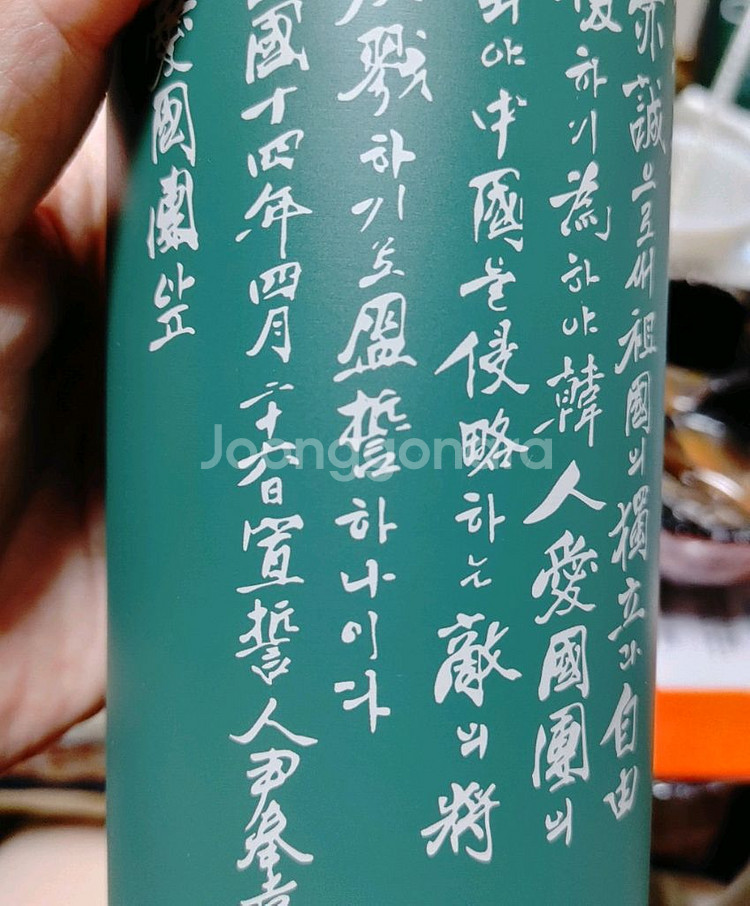 誠으로써 祖國의 獨立과 自由
하기 爲하야 韓人愛國團의
되야 中國을 侵略하는 敵의 將
戮하기로 盟誓하나이다
國十四年四月二十六日 宣誓人 尹奉吉
愛國團앞
Joonggonara